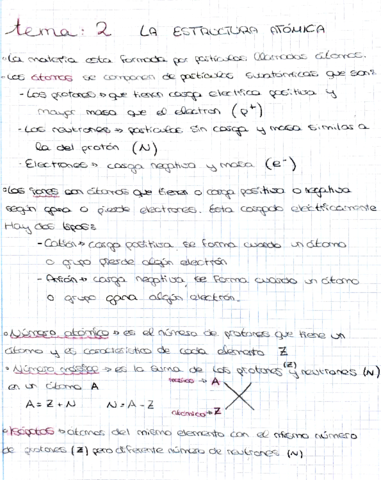 tema: 2 LA ESTRUCTURA ATÓMICA
• La materia esta formada por partículas llamadas átomos.
• Los átomos se componen de partículas subatómicas que son:
- Los protones → que tienen carga electrica positiva y
mayor masa que el electron (p⁺)
- Los neutrones → particulas sin carga y masa similar a
la del protón (N)
- Electrones → carga negativa y masa (e⁻)
• Los iones son átomos que tienen o carga positiva o negativa
según gana o pierde electrones. Esta cargado eléctricamente
Hay dos tipos:
- Catión → carga positiva, se forma cuando un átomo
o grupo pierde algún electrón
- Anión → carga negativa, se forma cuando un átomo
o grupo gana algún electrón.
• Número atómico → es el número de protones que tiene un
átomo y es característico de cada elemento Z
• Número másico → es la suma de los protones (Z) y neutrones (N)
en un átomo A
másico → A
A = Z + N N = A - Z
atómico → Z
• Isótopos → átomos del mismo elemento con el mismo número
de protones (Z) pero diferente número de neutrones (N)